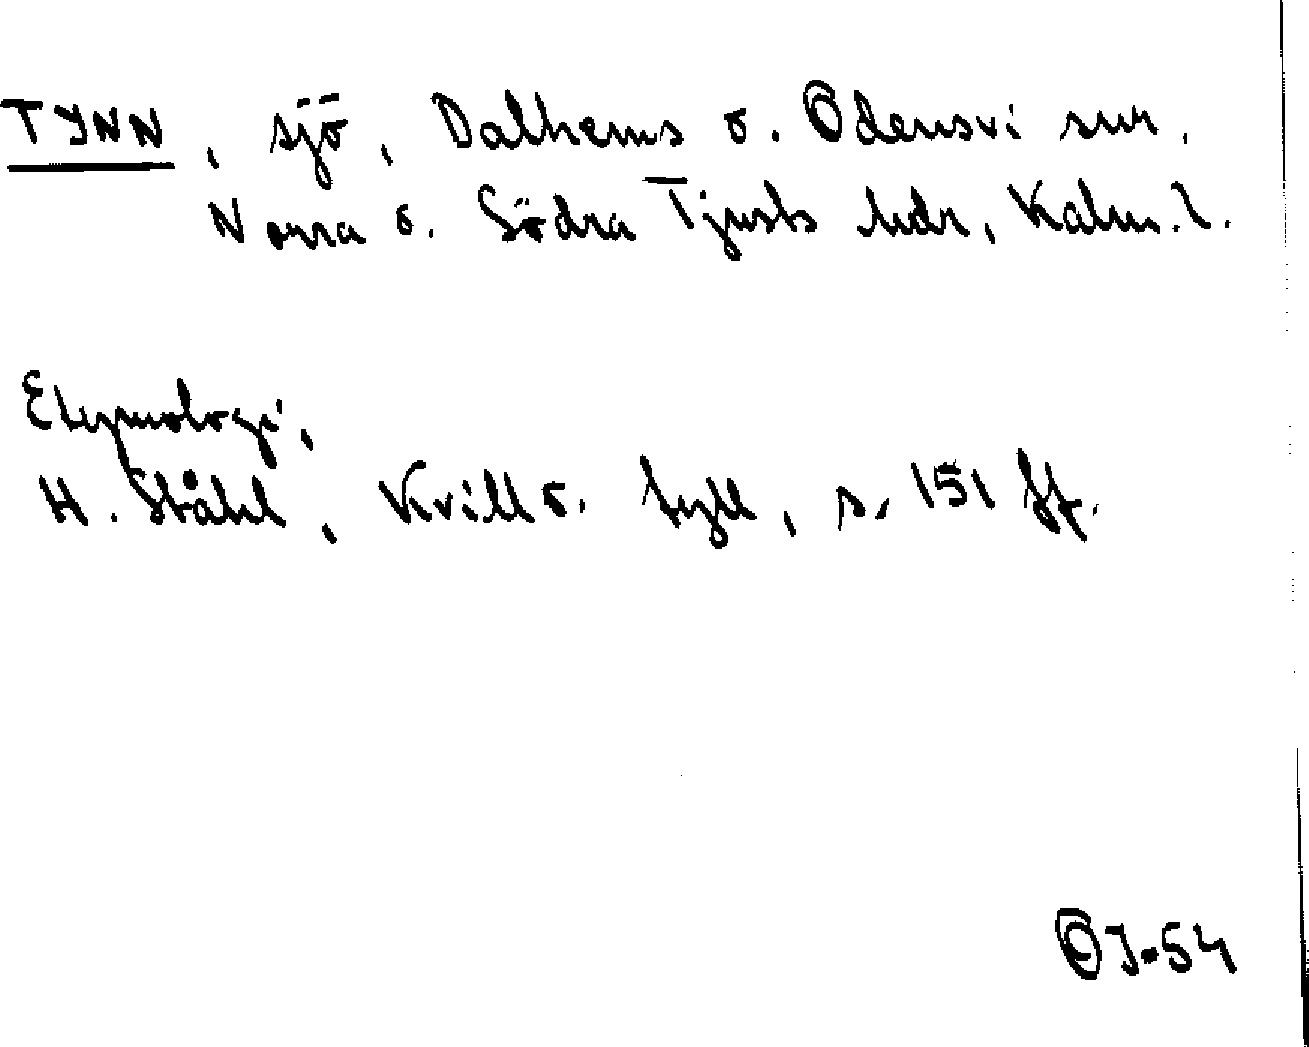 TYNN, sjö, Dalhems o. Odensvi snr,
Norra o. Södra Tjusts hdr, Kalm. l.
Etymologi,
H. Ståhl, Kvill o. Tyll, s. 151 ff.
OJ-54